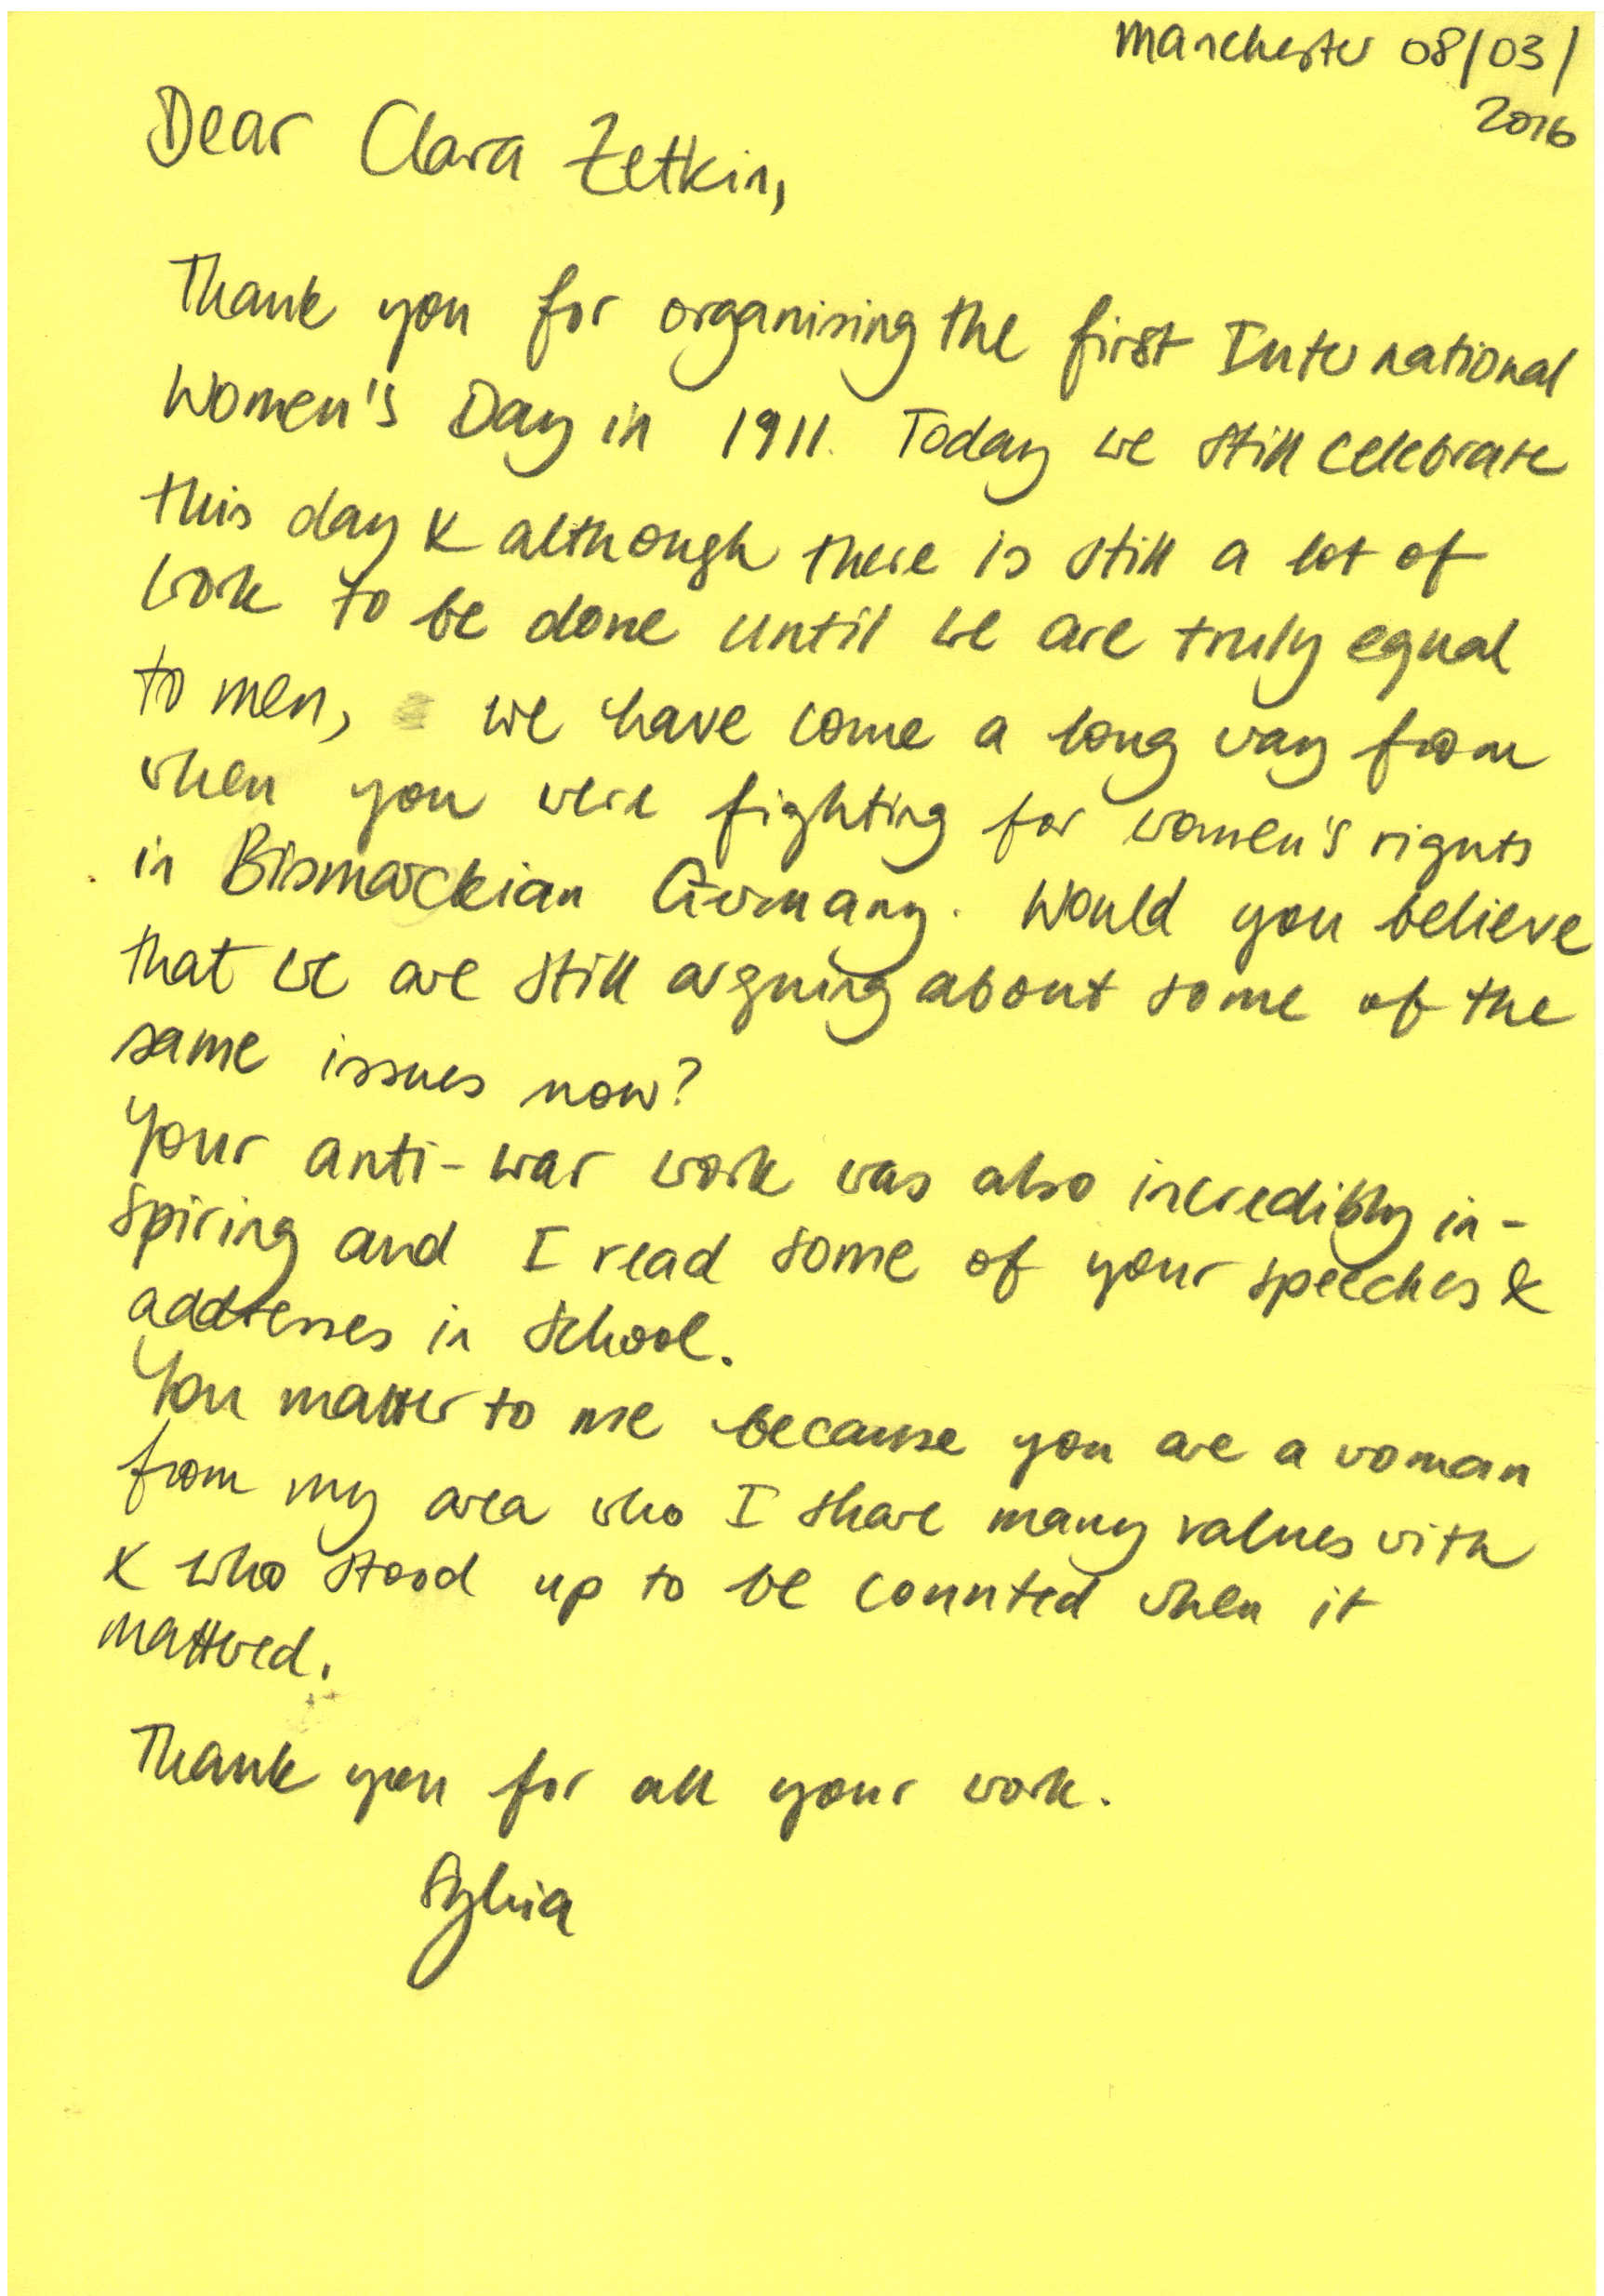 Manchester 08/03/
2016
Dear Clara Zetkin,
Thank you for organising the first International
Women's Day in 1911. Today we still celebrate
this day & although there is still a lot of
work to be done until we are truly equal
to men, we have come a long way from
when you were fighting for women's rights
in Bismarckian Germany. Would you believe
that we are still arguing about some of the
same issues now?
Your anti-war work was also incredibly in-
spiring and I read some of your speeches &
addresses in school.
You matter to me because you are a woman
from my area who I share many values with
& who stood up to be counted when it
mattered.
Thank you for all your work.
Sylvia